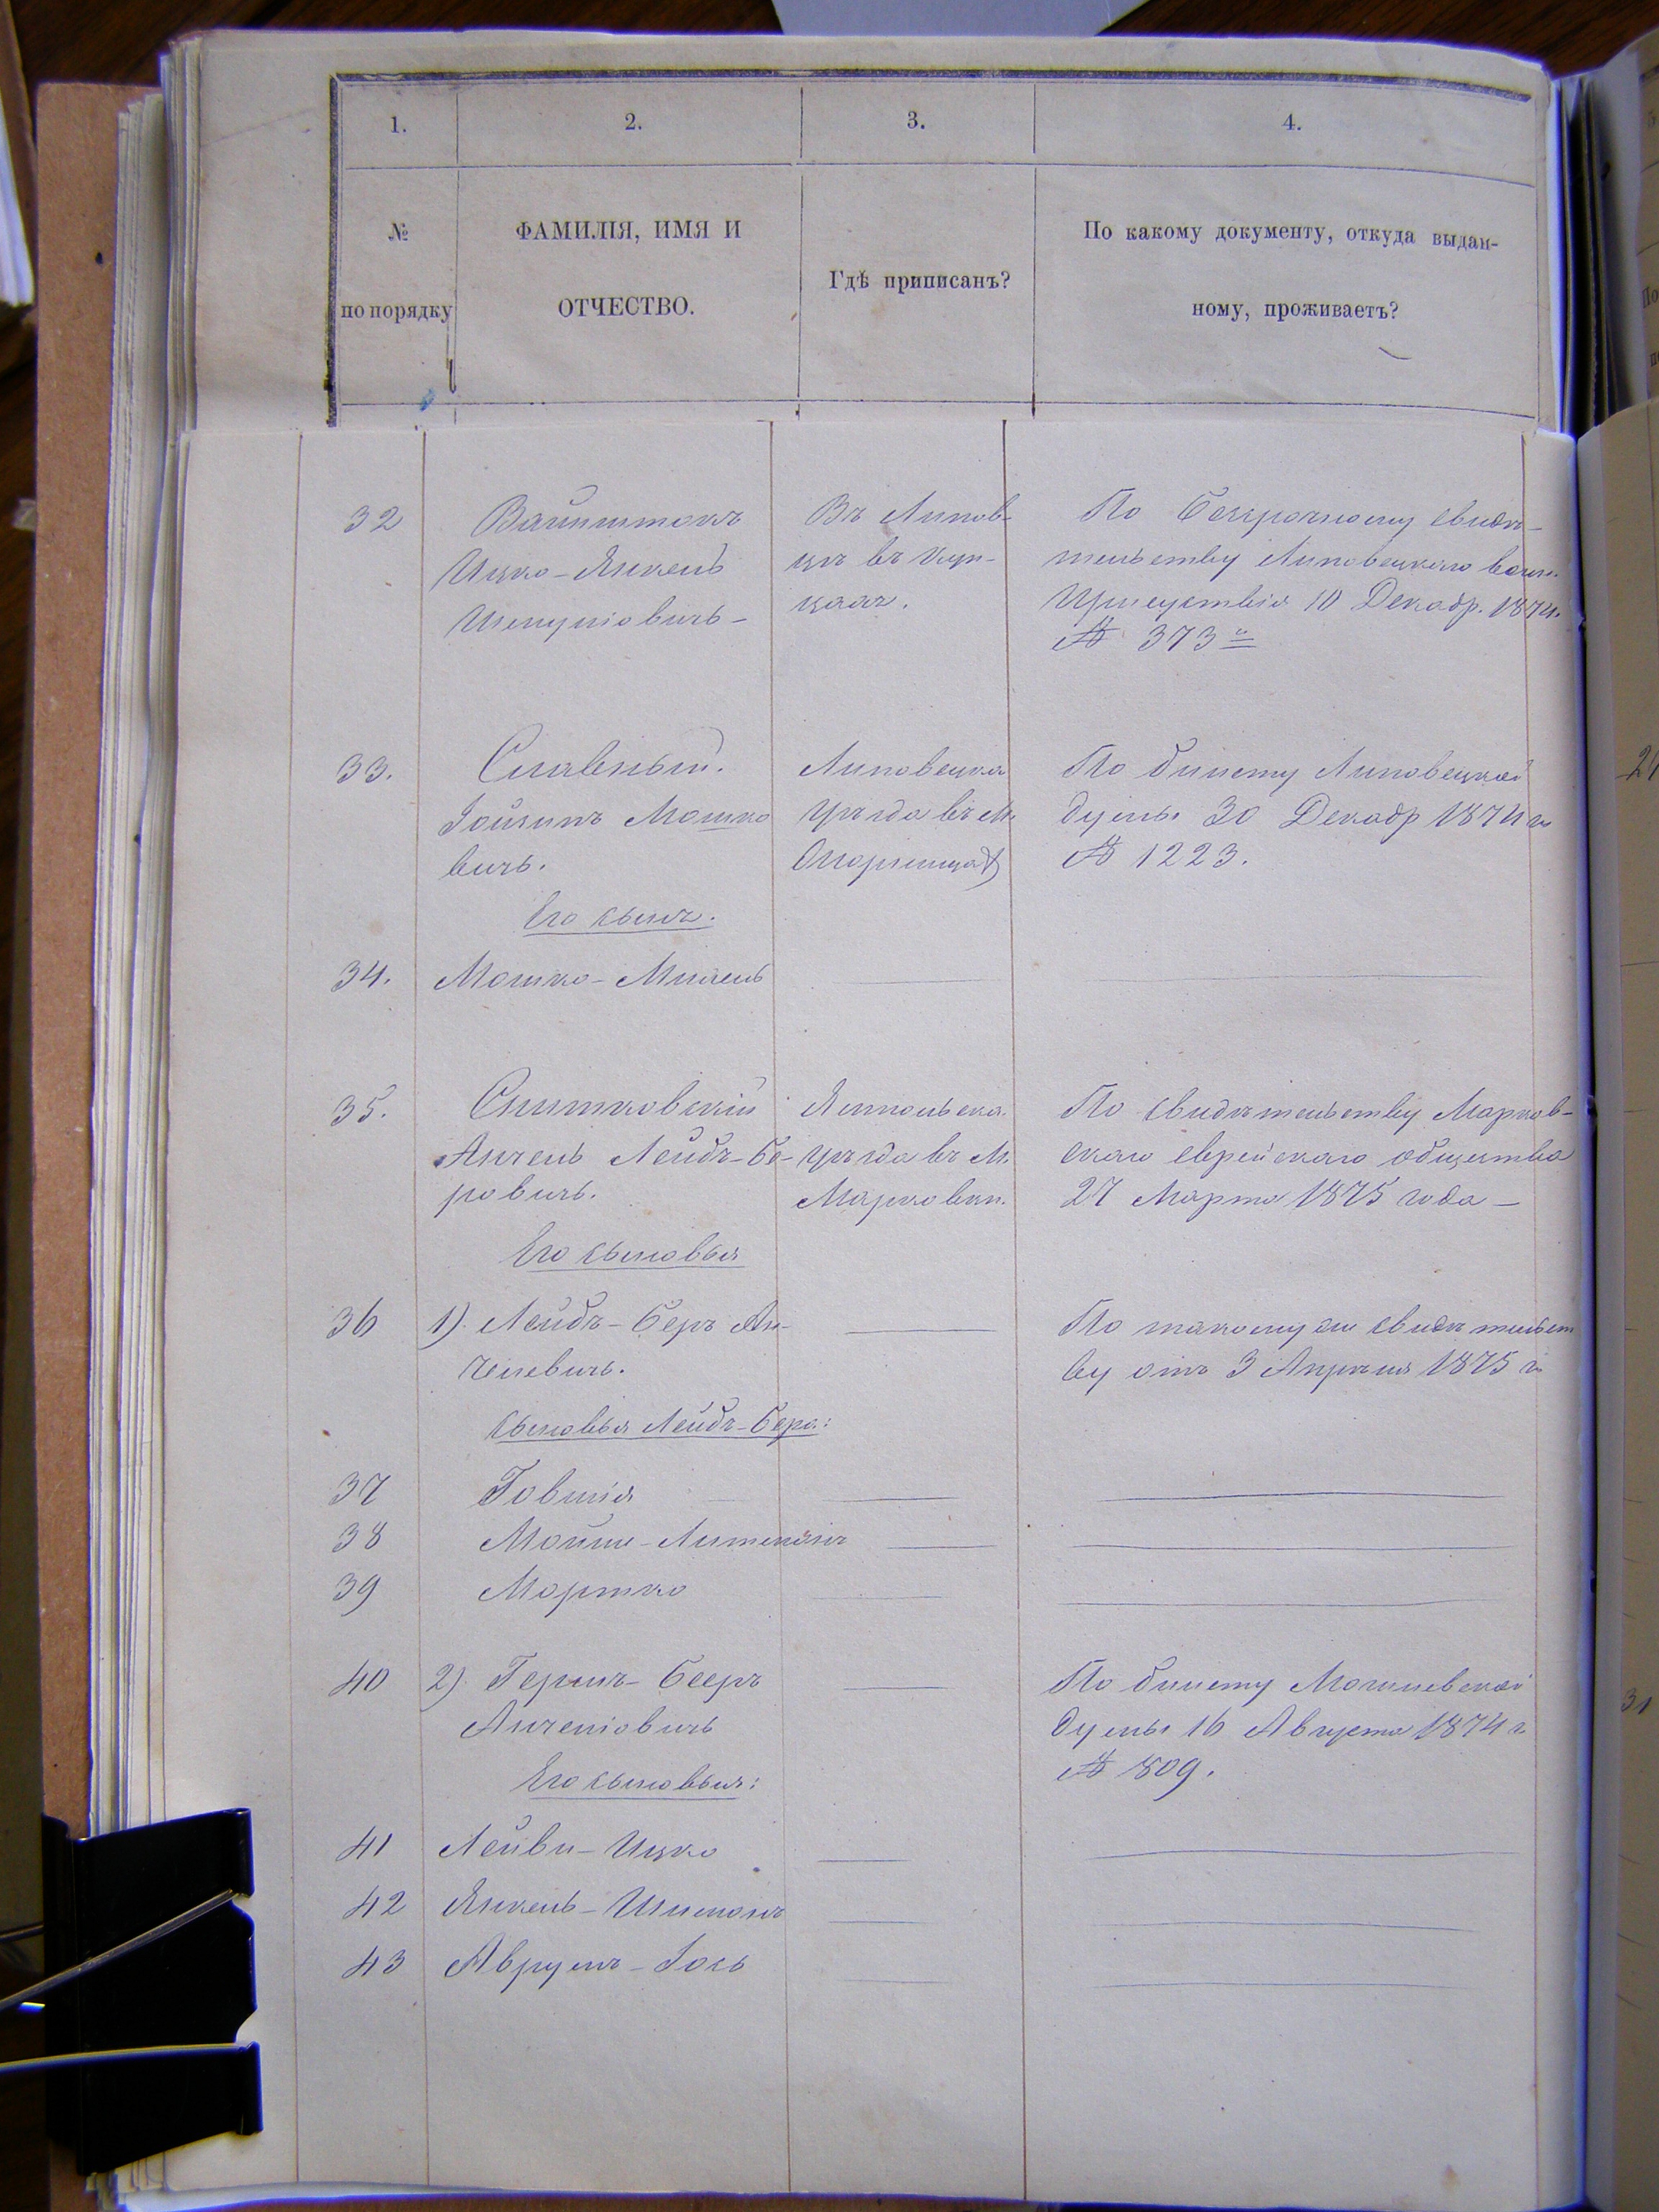 1.
2.
3.
4.
№
по порядку
ФАМИЛІЯ, ИМЯ И
ОТЧЕСТВО.
Гдѣ приписанъ?
По какому документу, откуда выдан-
ному, проживаетъ?
32
Вайнштокъ
Ицко-Янкель
Шмуліовичъ-
Въ Липов-
цѣ въ куп-
цахъ.
По безсрочному свидѣ-
тельству Липовецкаго воин.
Присутствія 10 Декабр. 1874.
№ 373
33.
Славный.
Іойхинъ Мошко
вичъ.
Липовецка
Уѣзда въ М.
По билету Липовецкой
думы 30 Декабр 1874 г
№ 1223.
Его сынъ.
34.
Мошко-Михель
35.
Снитковскій
Анчель Лейбъ-Бе-
ровичъ.
Ямпольска.
уѣзда въ М.
Марковки.
По свидѣтельству Марков-
скаго еврейскаго общества
27 Марта 1875 года -
Его сыновья
36
1). Лейбъ-Беръ Ан-
челевичъ.
По такому же свидѣтельст
ву отъ 3 Апрѣля 1875 г
сыновья Лейбъ-Бера:
37
Говшія
38
Мойше-
39
Мортко
40
2). Гершъ-Бееръ
Анчеліовичъ
По билету Могилевской
думы 16 Августа 1874 г
№ 809.
Его сыновья:
41
Лейви-Ицко
42
Янкель-Шимонъ
43
Аврумъ-Іось
21
31